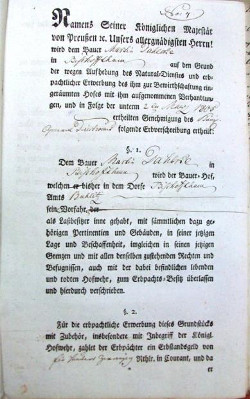 Namens Seiner Königlichen Majestät
von Preußen ꝛc. Unsers allergnädigsten Herrn!
wird dem Bauer Martin
in auf den Grund
der wegen Aufhebung des Natural-Dienstes und erb-
pachtlicher Erwerbung des ihm zur Bewirthschaftung ein-
geräumten Hofes mit ihm aufgenommenen Verhandlun-
gen, und in Folge der unterm
ertheilten Genehmigung des
folgende Erbverschreibung ertheilt:
§. 1.
Dem Bauer Martin
in wird der Bauer-Hof,
welchen bisher in dem Dorfe
Amts
sein Vorfahr, der
als Laßbesitzer inne gehabt, mit sämmtlichen dazu ge-
hörigen Pertinentien und Gebäuden, in seiner jetzigen
Lage und Beschaffenheit, ingleichen in seinen jetzigen
Grenzen und mit allen denselben zustehenden Rechten und
Befugnissen, auch mit der dabei befindlichen lebenden
und todten Hofwehr, zum Erbpachts-Besitz überlassen
und hierdurch verschrieben.
§. 2.
Für die erbpachtliche Erwerbung dieses Grundstücks
mit Zubehör, insbesondere mit Inbegriff der Königl.
Hofwehr, zahlet der Erbpächter ein Erbstandsgeld von
Rthlr. in Courant, und da
er